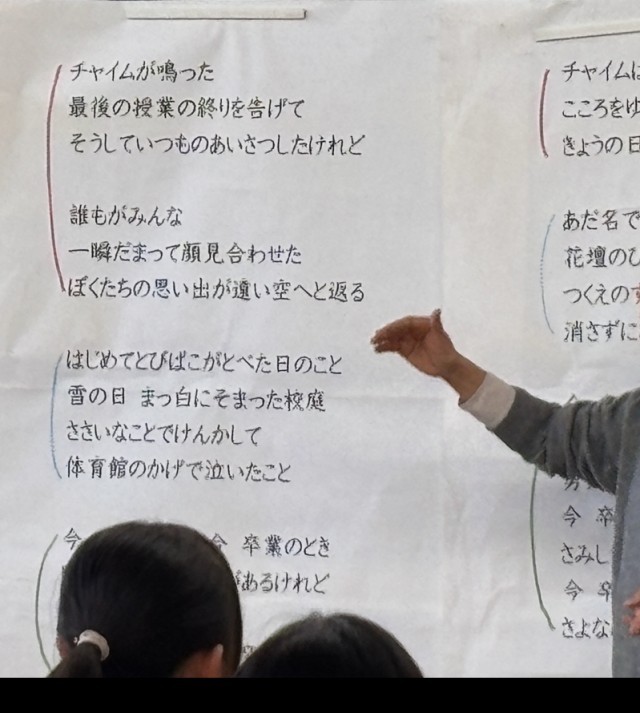 チャイムが鳴った
最後の授業の終りを告げて
そうしていつものあいさつしたけれど
誰もがみんな
一瞬だまって顔見合わせた
ぼくたちの思い出が遠い空へと返る
はじめてとびばこがとべた日のこと
雪の日 まっ白にそまった校庭
ささいなことでけんかして
体育館のかげで泣いたこと
今 今 卒業のとき
があるけれど
チャイムは
こころをゆ
きょうの日
あだ名で
花壇のひ
つくえの
消さずに
今 卒
さみし
今 卒
さよな